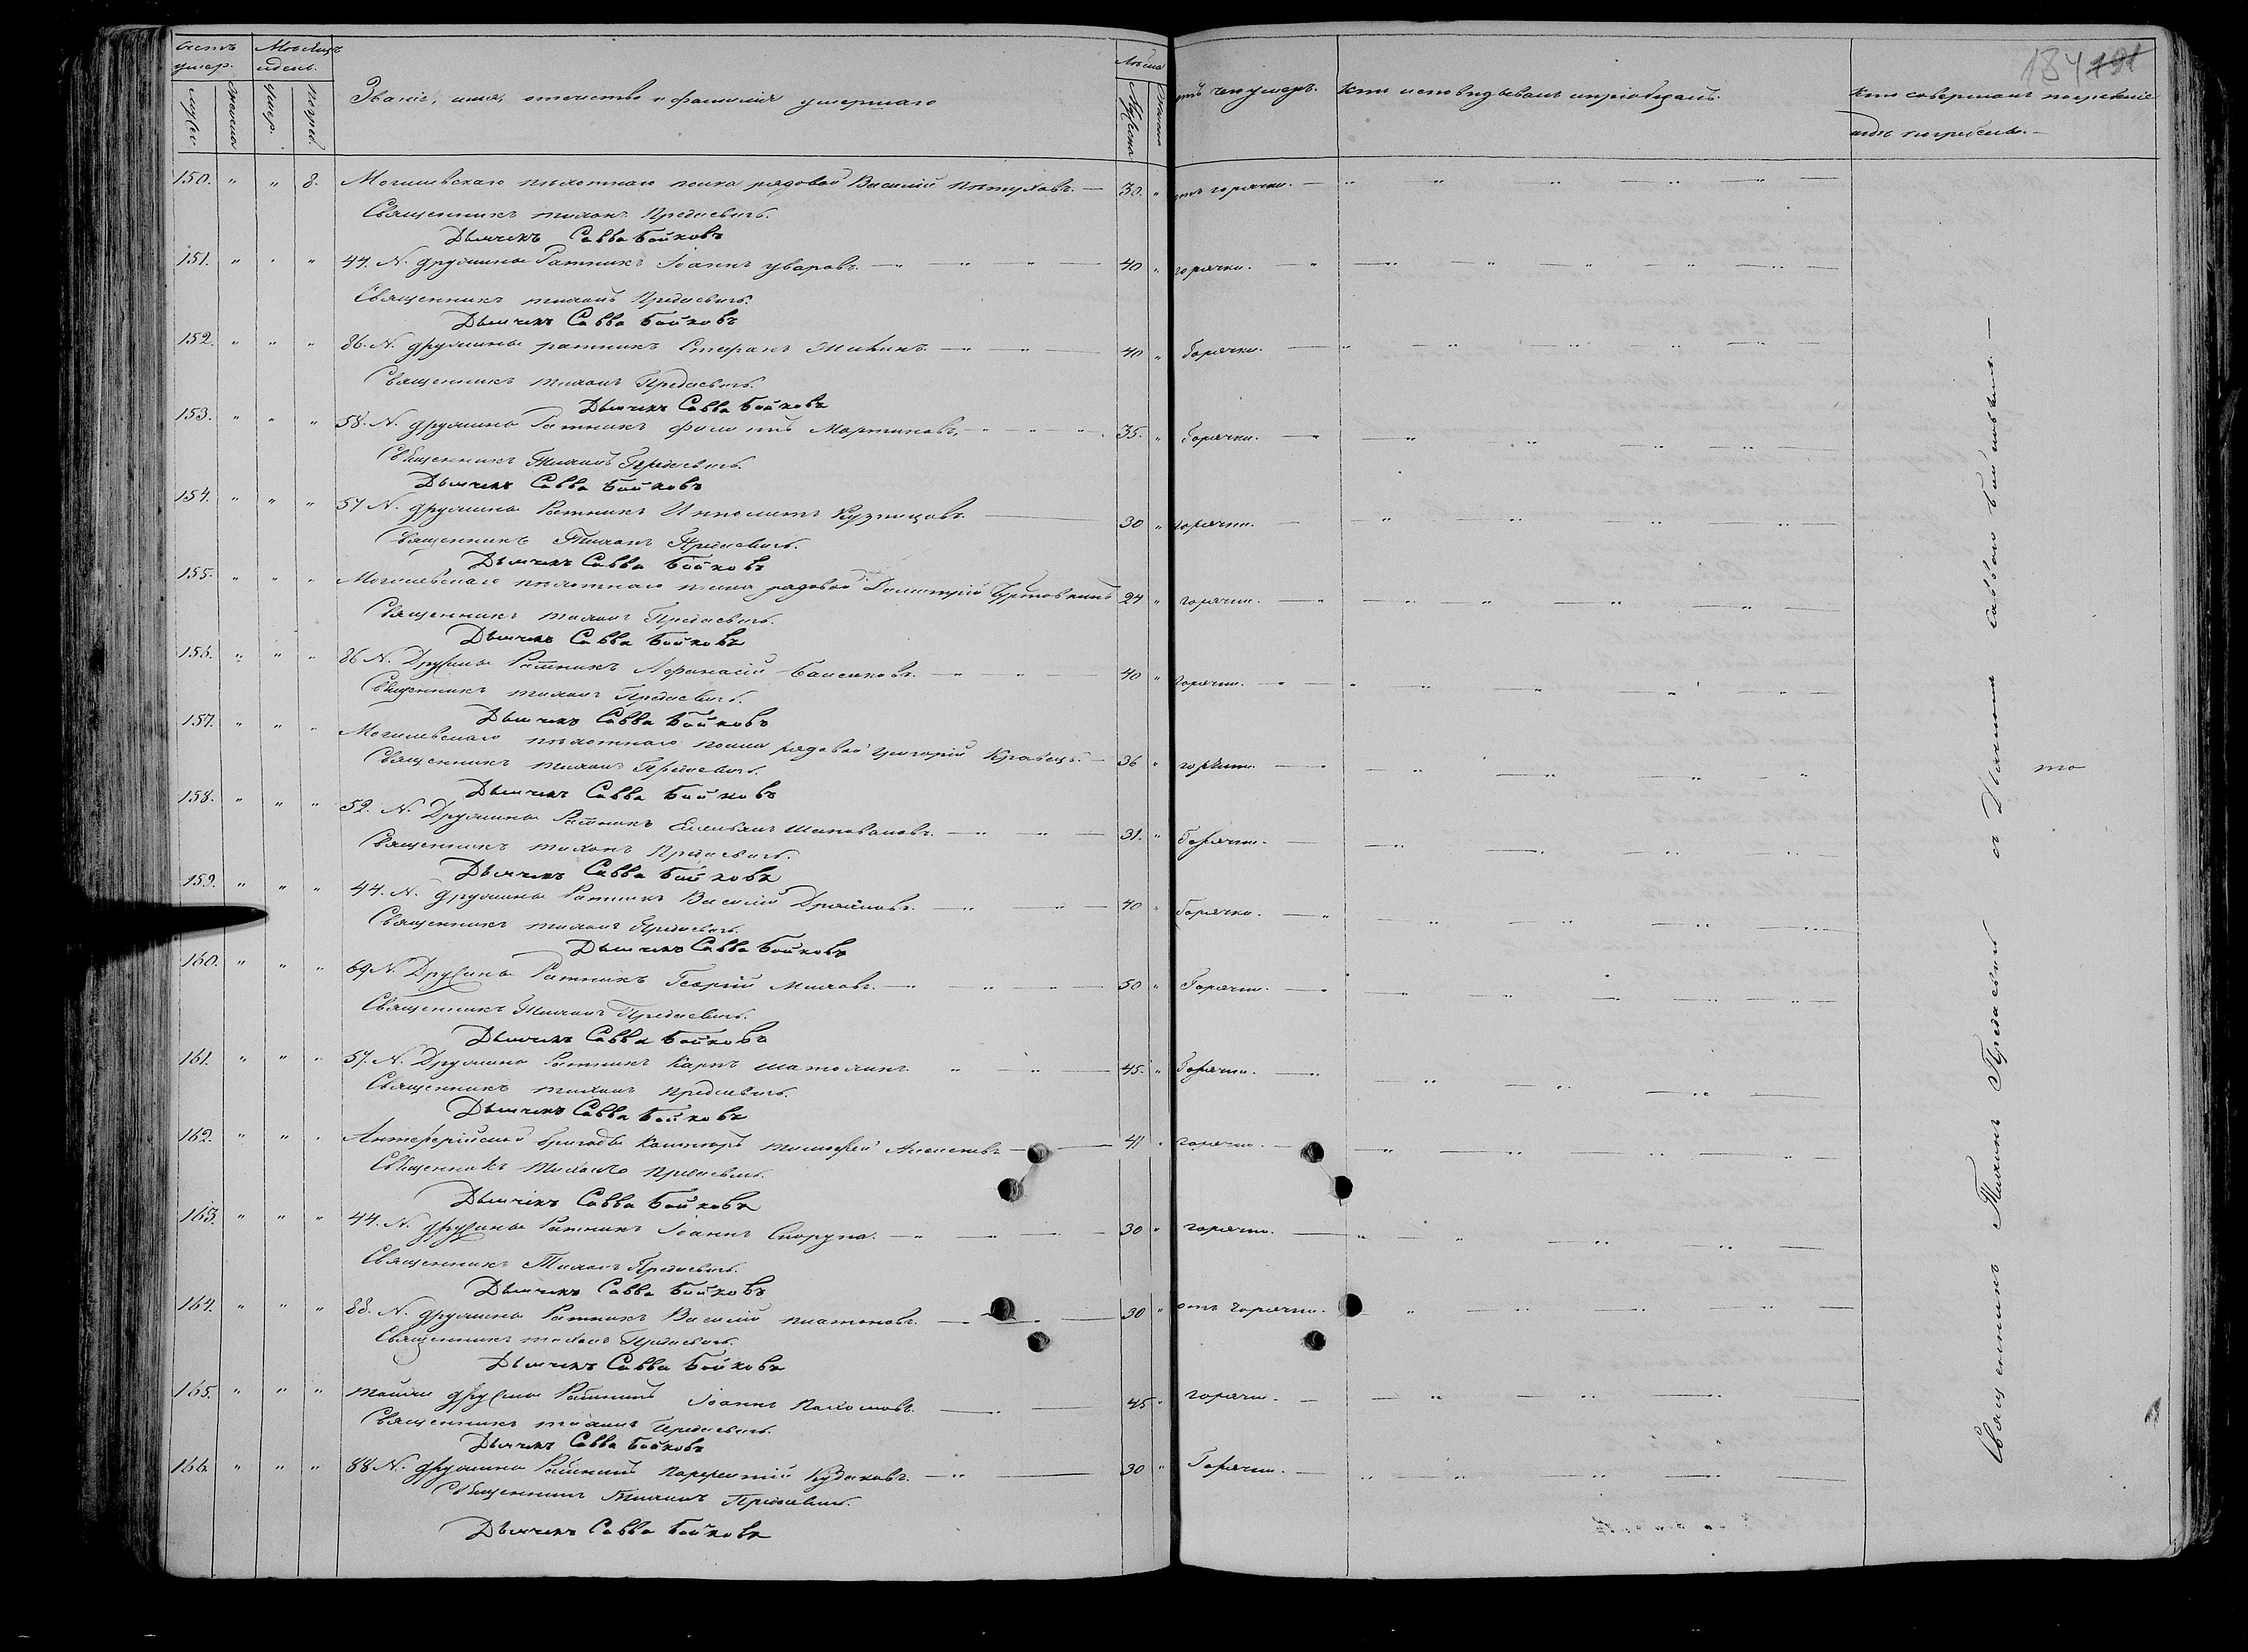 Счетъ умер.
Мѣсяцъ и день.
Званіе, имя, отчество и фамилія умершаго
Лѣта
отъ чего умеръ.
Кто исповѣдывалъ и пріобщалъ
Кто совершалъ погребеніе
и гдѣ погребены. —
184 191
муж.
женска
умер.
погреб.
Мужеска
Женска
150. " " 8. Могилевскаго пѣхотнаго полка рядовой Василій Пѣтуховъ. — 30. " отъ горячки. —
Священникъ Тихонъ
Дьячекъ Савва Бойковъ
151. " " " 44. N. дружины Ратникъ Іоаннъ Уваровъ — 40 " горячки. —
Священникъ Тихонъ
Дьячекъ Савва Бойковъ
152. " " " 86. N. дружины ратникъ Стефанъ — 40 " Горячки. —
Священникъ Тихонъ
Дьячекъ Савва Бойковъ
153. " " " 58. N. дружины Ратникъ Филиппъ Мартиновъ, — 35. " Горячки. —
Священникъ Тихонъ
Дьячекъ Савва Бойковъ
154. " " " 57 N. дружины Ратникъ Ипполитъ Кузнецовъ. — 30 " горячки. —
Священникъ Тихонъ
Дьячекъ Савва Бойковъ
155. " " " Могилевскаго пѣхотнаго полка рядовой Димитрій 24 " горячки. —
Священникъ Тихонъ
Дьячекъ Савва Бойковъ
156. " " " 86 N. Дружины Ратникъ Афанасій — 40 " Горячки. —
Священникъ Тихонъ
Дьячекъ Савва Бойковъ
157. " " " Могилевскаго пѣхотнаго полка рядовой Григорій Кравецъ. — 36 " горячки. —
Священникъ Тихонъ
Дьячекъ Савва Бойковъ
158. " " " 52. N. Дружины Ратникъ Емельянъ Шаповаловъ. — 31. " Горячки. —
Священникъ Тихонъ
Дьячекъ Савва Бойковъ
159. " " " 44. N. дружины Ратникъ Василій — 40 " Горячки. —
Священникъ Тихонъ
Дьячекъ Савва Бойковъ
160. " " " 69 N. Дружины Ратникъ Георгій — 50 " Горячки. —
Священникъ Тихонъ
Дьячекъ Савва Бойковъ
161. " " " 57. N. Дружины Ратникъ Карпъ — 45. " Горячки. —
Священникъ Тихонъ
Дьячекъ Савва Бойковъ
162. " " " бригады Тимофей Алексѣевъ — 41 " горячки. —
Священникъ Тихонъ
Дьячекъ Савва Бойковъ
163. " " " 44. N. дружины Ратникъ Іоаннъ Скорупа. — 30 " горячки. —
Священникъ Тихонъ
Дьячекъ Савва Бойковъ
164. " " " 88. N. дружины Ратникъ Василій Платоновъ. — 30 " отъ горячки. —
Священникъ Тихонъ
Дьячекъ Савва Бойковъ
165. " " " дружины Ратникъ Іоаннъ Пахомовъ. — 45 " горячки. —
Священникъ Тихонъ
Дьячекъ Савва Бойковъ
166. " " " 88 N. дружины Ратникъ — 30 " Горячки. —
Священникъ Тихонъ
Дьячекъ Савва Бойковъ
Священникъ Тихонъ съ Дьячкомъ Саввою Бойковымъ. —